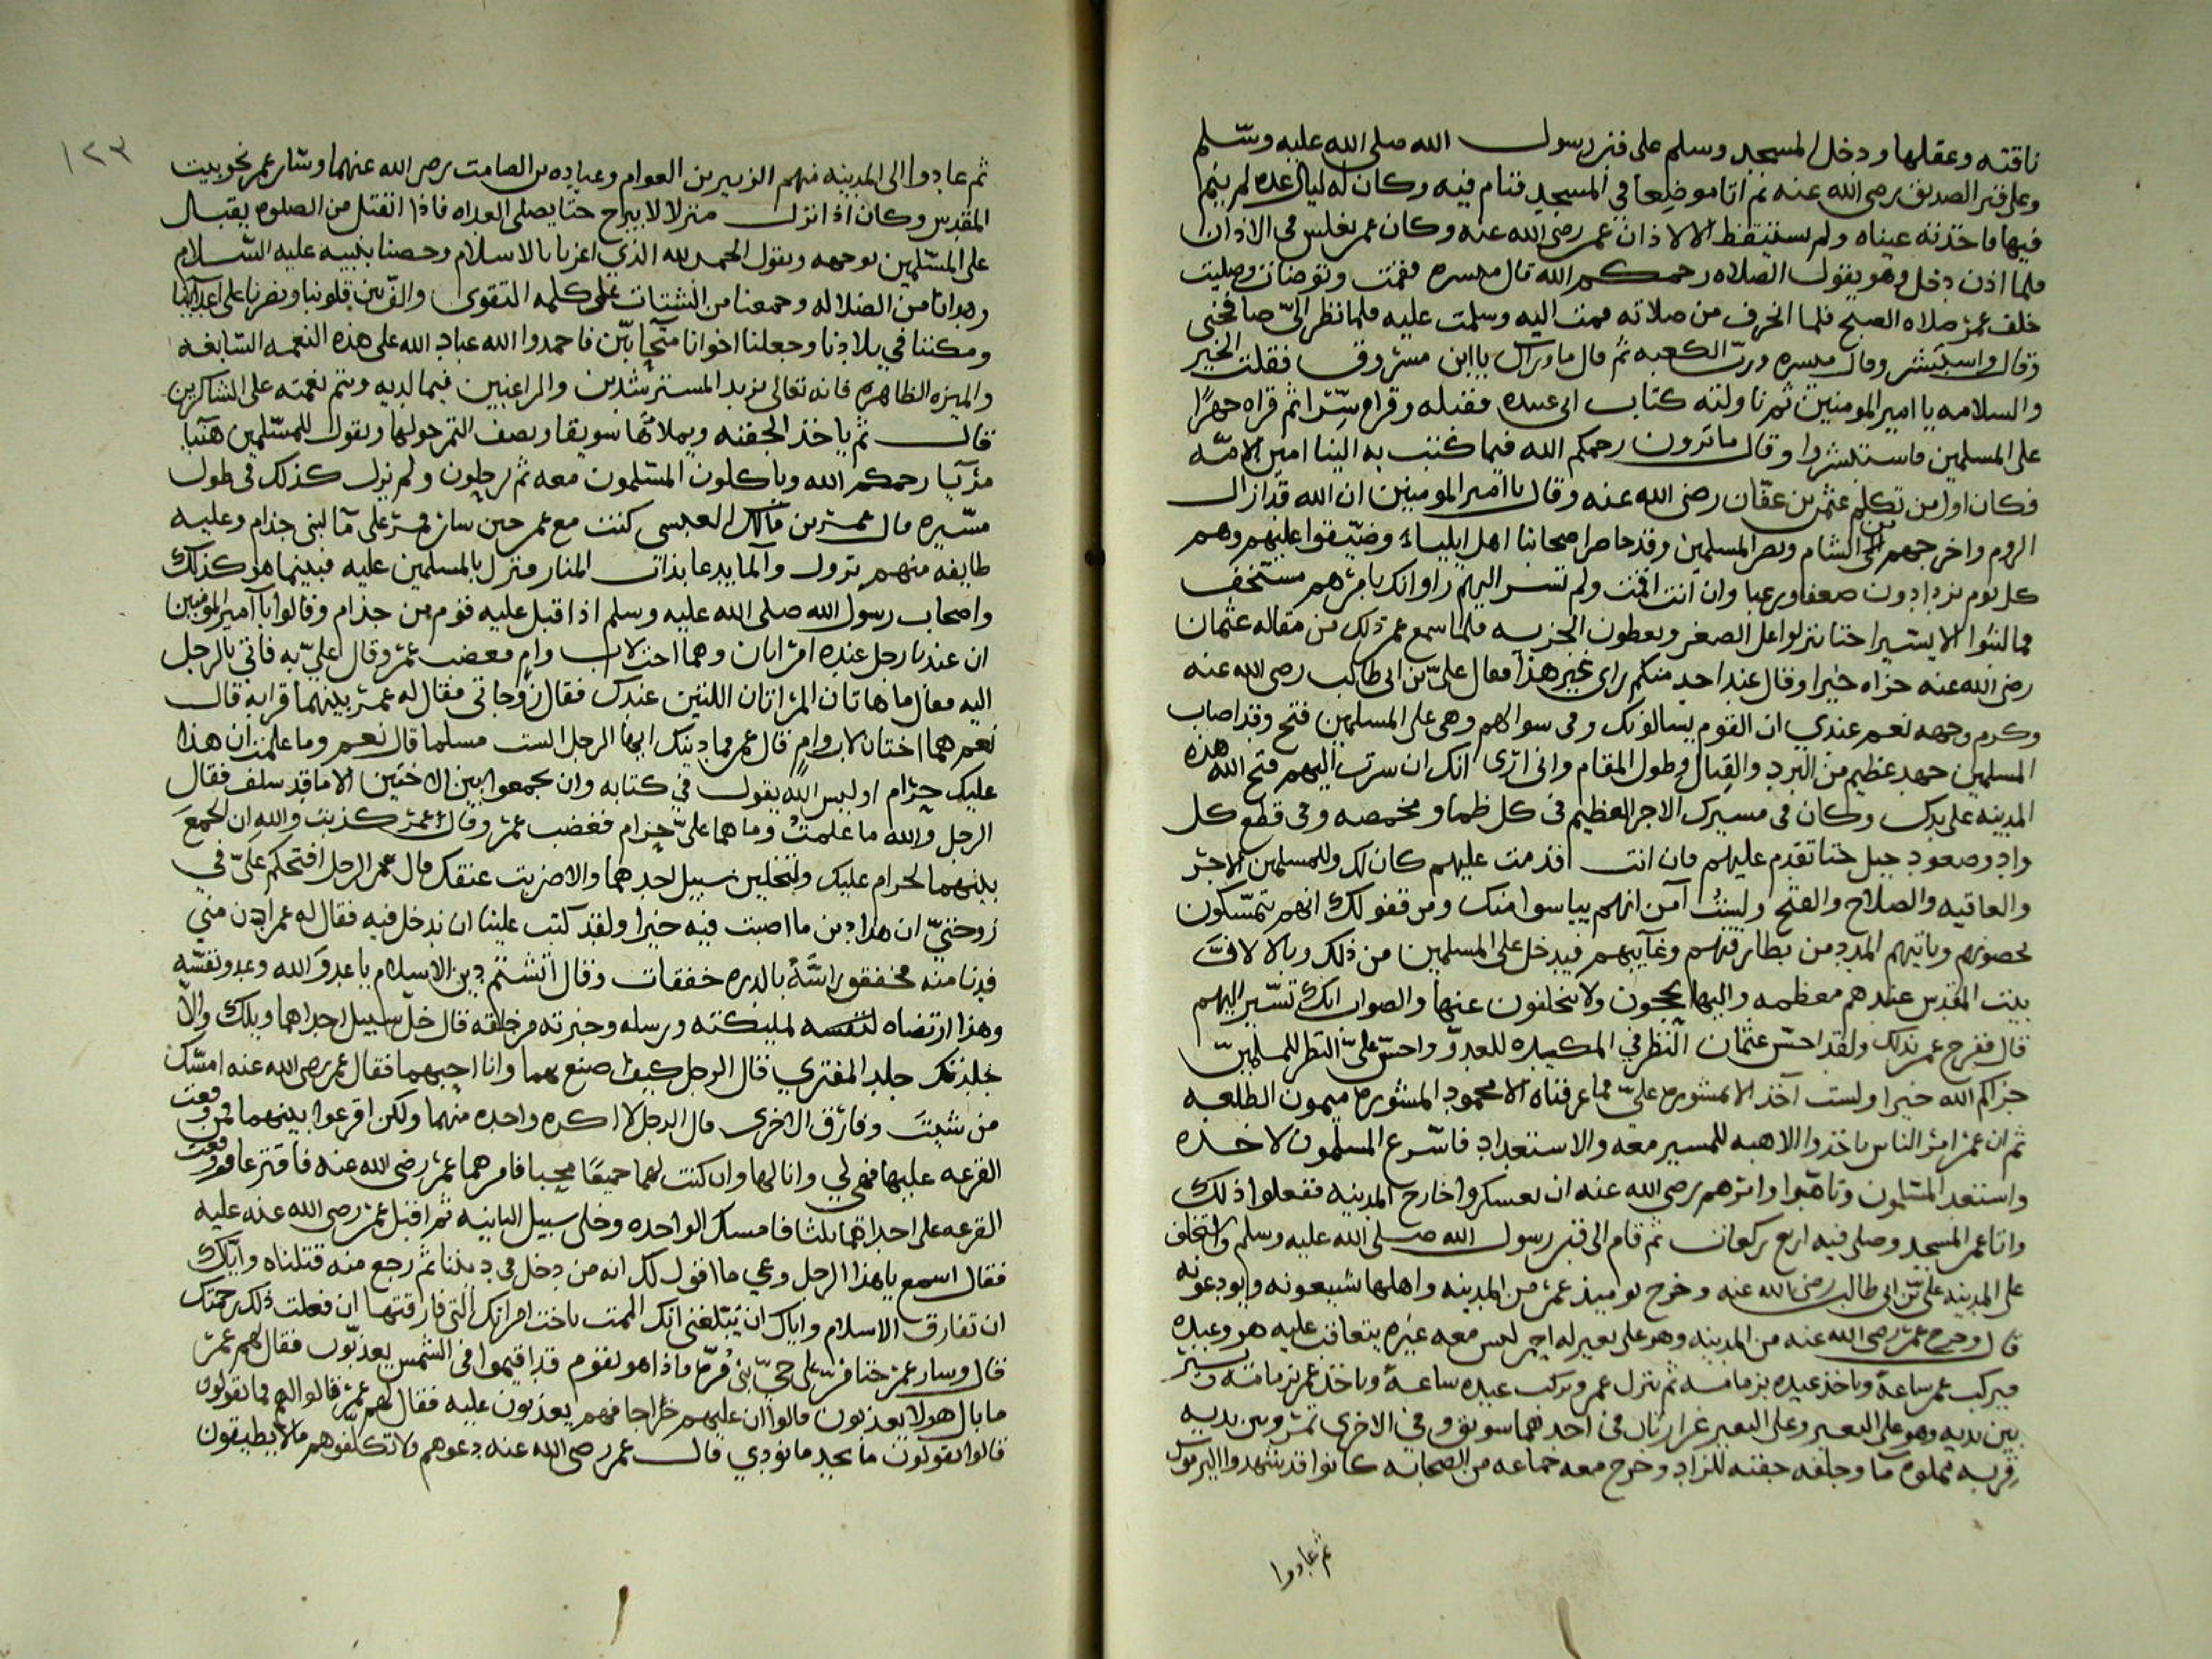 ناقته وعقلها ودخل المسجد وسلم على قبر رسول الله صلى الله عليه وسلم
وعلى قبر الصديق رضى الله عنه ثم اتا موضعا في المسجد فنام فيه وكان له ليال عده لم ينم
فيها فاخذته عيناه ولم يستيقظ الا لاذان عمر رضى الله عنه وكان عمر يغلس في الاذان
فلما اذن دخل وهو يقول الصلاه رحمكم الله قال ميسره فقمت وتوضات وصليت
خلف عمر صلاه الصبح فلما انحرف من صلاته قمت اليه وسلمت عليه فلما نظر الىّ صافحنى
وقال واستبشر وقال ميسره وربّ الكعبه ثم قال ما وراك يا ابن مسروق فقلت الخير
والسلامه يا امير المومنين ثم ناولته كتاب ابى عبيده فقبله وقراه سِرًّا ثم قراه جهرًا
على المسلمين فاستبشروا وقال ما ترون رحمكم الله فيما كتب به الينا امين الامّه
فكان اول من تكلم عثمن بن عفّان رضى الله عنه وقال يا امير المومنين ان الله قد ازال
الروم واخرجهم من الشام ونصر المسلمين وقد حاصر اصحابنا اهل ايلياء وضيّقوا عليهم وهم
كل يوم يزدادون ضعفا ورعبا وان انت اقمت ولم تسر اليهم راوا انك بامرهم مستخف
فما لبثوا الا يسيرا حتا ينزلوا على الصغر ويعطون الجزيه فلما سمع عمر ذلك من مقاله عثمان
رضى الله عنه جزاه خيرا وقال عند احد منكم راى غير هذا فقال علىّ بن ابى طالب رضى الله عنه
وكرم وجهه نعم عندي ان القوم يسالونك وفى سوالهم وهى على المسلمين فتح وقد اصاب
المسلمين جهد عظيم من البرد والقتال وطول المقام وانى ارى انك ان سرت اليهم فتح الله هده
المدينه على يدك وكان فى مسيرك الاجر العظيم فى كل ظما ومخمصه وفى قطع كل
واد وصعود جبل حتا تقدم عليهم فان انت قدمت عليهم كان لك وللمسلمين الاجر
والعافيه والصلاح والفتح ولستُ آمن انهم ييأسوا منك ومن قفولك انهم يتمسّكون
بحصونهم وياتيهم المدد من بطارقتهم وغآيبهم فيدخل على المسلمين من ذلك وبالا لافتَ
بيت المقدس عندهم معظمه واليها يحجون ولا يتخلفون عنها والصواب انك تسّير اليهم
قال ففرح عمر بذلك ولقد احسّن عثمان النظر في المكيده للعدوّ واحسّن علىّ النظر للمسلمينّ
جزاكم الله خيرا ولست آخذ الا بمشوره علىّ فما عرفناه الا محمود المشوره ميمون الطلعه
ثم ان عمر امر الناس ياخذوا الاهبه للمسير معه والاستعداد فاسّرع المسلمون لاخذه
واستعد المسّلمون وتاهّبوا وامرهم رضى الله عنه ان يعسكروا خارج المدينه ففعلوا ذلك
واتا عمر المسجد وصلى فيه اربع ركعات ثم قام الى قبر رسول الله صلى الله عليه وسلم واستخلف
على المدينه علىّ بن ابى طالب رضى الله عنه وخرج يوميذ عمر من المدينه واهلها يشيعونه ويودعونه
قال وخرج عمر رضى الله عنه من المدينه وهو على بعير له احمر ليس معه غيره يتعاقب عليه هو وعبده
فيركب عمر ساعة وياخذ عبده بزمامه ثم ينزل عمر ويركب عبده ساعة وياخذ عمر بزمامه ويسير
بين يديه وهو على البعير وعلى البعير غرارتان فى احدهما سويق وفي الاخرى تمر وبين يديه
قربه مملوه ما وخلفه جفنه للزاد وخرج معه جماعه من الصحابه كانوا قد شهدوا اليرموك
ثم عادوا
١٢٣
ثم عادوا الى المدينه فيهم الزبير بن العوام وعباده بن الصامت رضى الله عنهما وسّار عمر نحو بيت
المقدس وكان اذا نزل منزلا لا يبرح حتا يصلى الغداه فاذا انفتل من الصلوه يقبل
على المسّلمين بوجهه ويقول الحمد لله الذي اعزنا بالاسلام وخصنا بنبيه عليه السّلام
وهدانا من الضلاله وجمعنا من الشتات على كلمه التقوى والّف بين قلوبنا ونصرنا على اعدآينا
ومكننا في بلادنا وجعلنا اخوانا متحابّين فاحمدوا الله عباد الله على هذه النعمه السّابغه
والميزه الظاهره فانه تعالى يزيد المسترشدين والراغبين فيما لديه ويتم نعمته على الشاكرين
قال ثم ياخذ الجفنه ويملاها سويقا ويصف التمر حولها ويقول للمسّلمين هنيا
مرّيا رحمكم الله وياكلون المسّلمون معه ثم يرحلون ولم يزل كذلك فى طول
مسّيره قال عمر بن مالك العبسى كنت مع عمر حين سار فمرّ على مآ لبنى جذام وعليه
طايفه منهم نزول والما يدعا بذات المنار فنزل بالمسلمين عليه فبينما هو كذلك
واصحاب رسول الله صلى الله عليه وسلم اذا قبل عليه قوم من جذام وقالوا يا امير المومنين
ان عندنا رجل عنده امراتان وهما اختا لاب وام فغضب عمر وقال علىّ به فاتي بالرجل
اليه فقال ما هاتان المراتان اللتين عندك فقال زوجاتى فقال له عمر بينهما قرابه قال
نعم هما اختان لاب وام قال عمر فما دينك ايها الرجل الست مسلما قال نعم وما علمت ان هذا
عليك حرام او ليس الله يقول في كتابه وان تجمعوا بين الاختين الا ما قد سلف فقال
الرجل والله ما علمتُ وما هما علىّ حرام فغضب عمر وقال عمر كذبت والله ان الجمع
بينهما لحرام عليك ولتخلين سبيل احدهما والا ضربت عنقك قال عمر الرجل افتحكم علىّ في
زوجتيّ ان هذا دين ما اصبت فيه خيرا ولقد كتب علينا ان ندخل فيه فقال له عمر ادن منى
فدنا منه فخفقق راسَّهُ بالدره خفقات وقال اتشتم دين الاسلام يا عدوّ الله وعدو نفسّه
وهذا ارتضاه لنفسه لمليكته ورسله وخيرته من خلقه قال خلّ سبيل احداهما ويلك والاّ
جلدتك جلد المفتري فقال الرجل كيف اصنع بهما وانا احبهما فقال عمر رضى الله عنه امسّك
من شيتَ وفارق الاخرى قال الرجل لا اكره واحده منهما ولكن اقرعوا بينهما فمن وقعت
القرعه عليها فهى لي وانا لها وان كنت لهما جميعًا محبا فامرهما عمر رضى الله عنه فاقترعا فوقعت
القرعه على احداهما ثلثا فامسك الواحده وخلى سبيل الثانيه ثم اقبل عمر رضى الله عنه عليه
فقال اسمع يا هذا الرجل وعي ما اقول لك انه من دخل فى ديننا ثم رجع منه قتلناه واياك
ان تفارق الاسلام واياك ان يبّلغنى انك الممت باخت امراتك التى فارقتها ان فعلت ذلك رجمتك
قال وسار عمر حتا مرّ على حىّ بنى مُرّه فاذا هو بقوم قد اقيموا في الشمس يعذبّون فقال لهم عمر
ما بال هولا يعذبون قالوا ان عليهم خراجا فهم يعذبون عليه فقال لهم عمر قالوا لهم فما تقولون
قالوا يقولون ما نجد ما نودي قال عمر رضى الله عنه دعوهم ولا تكلّفوهم ما لا يطيقون